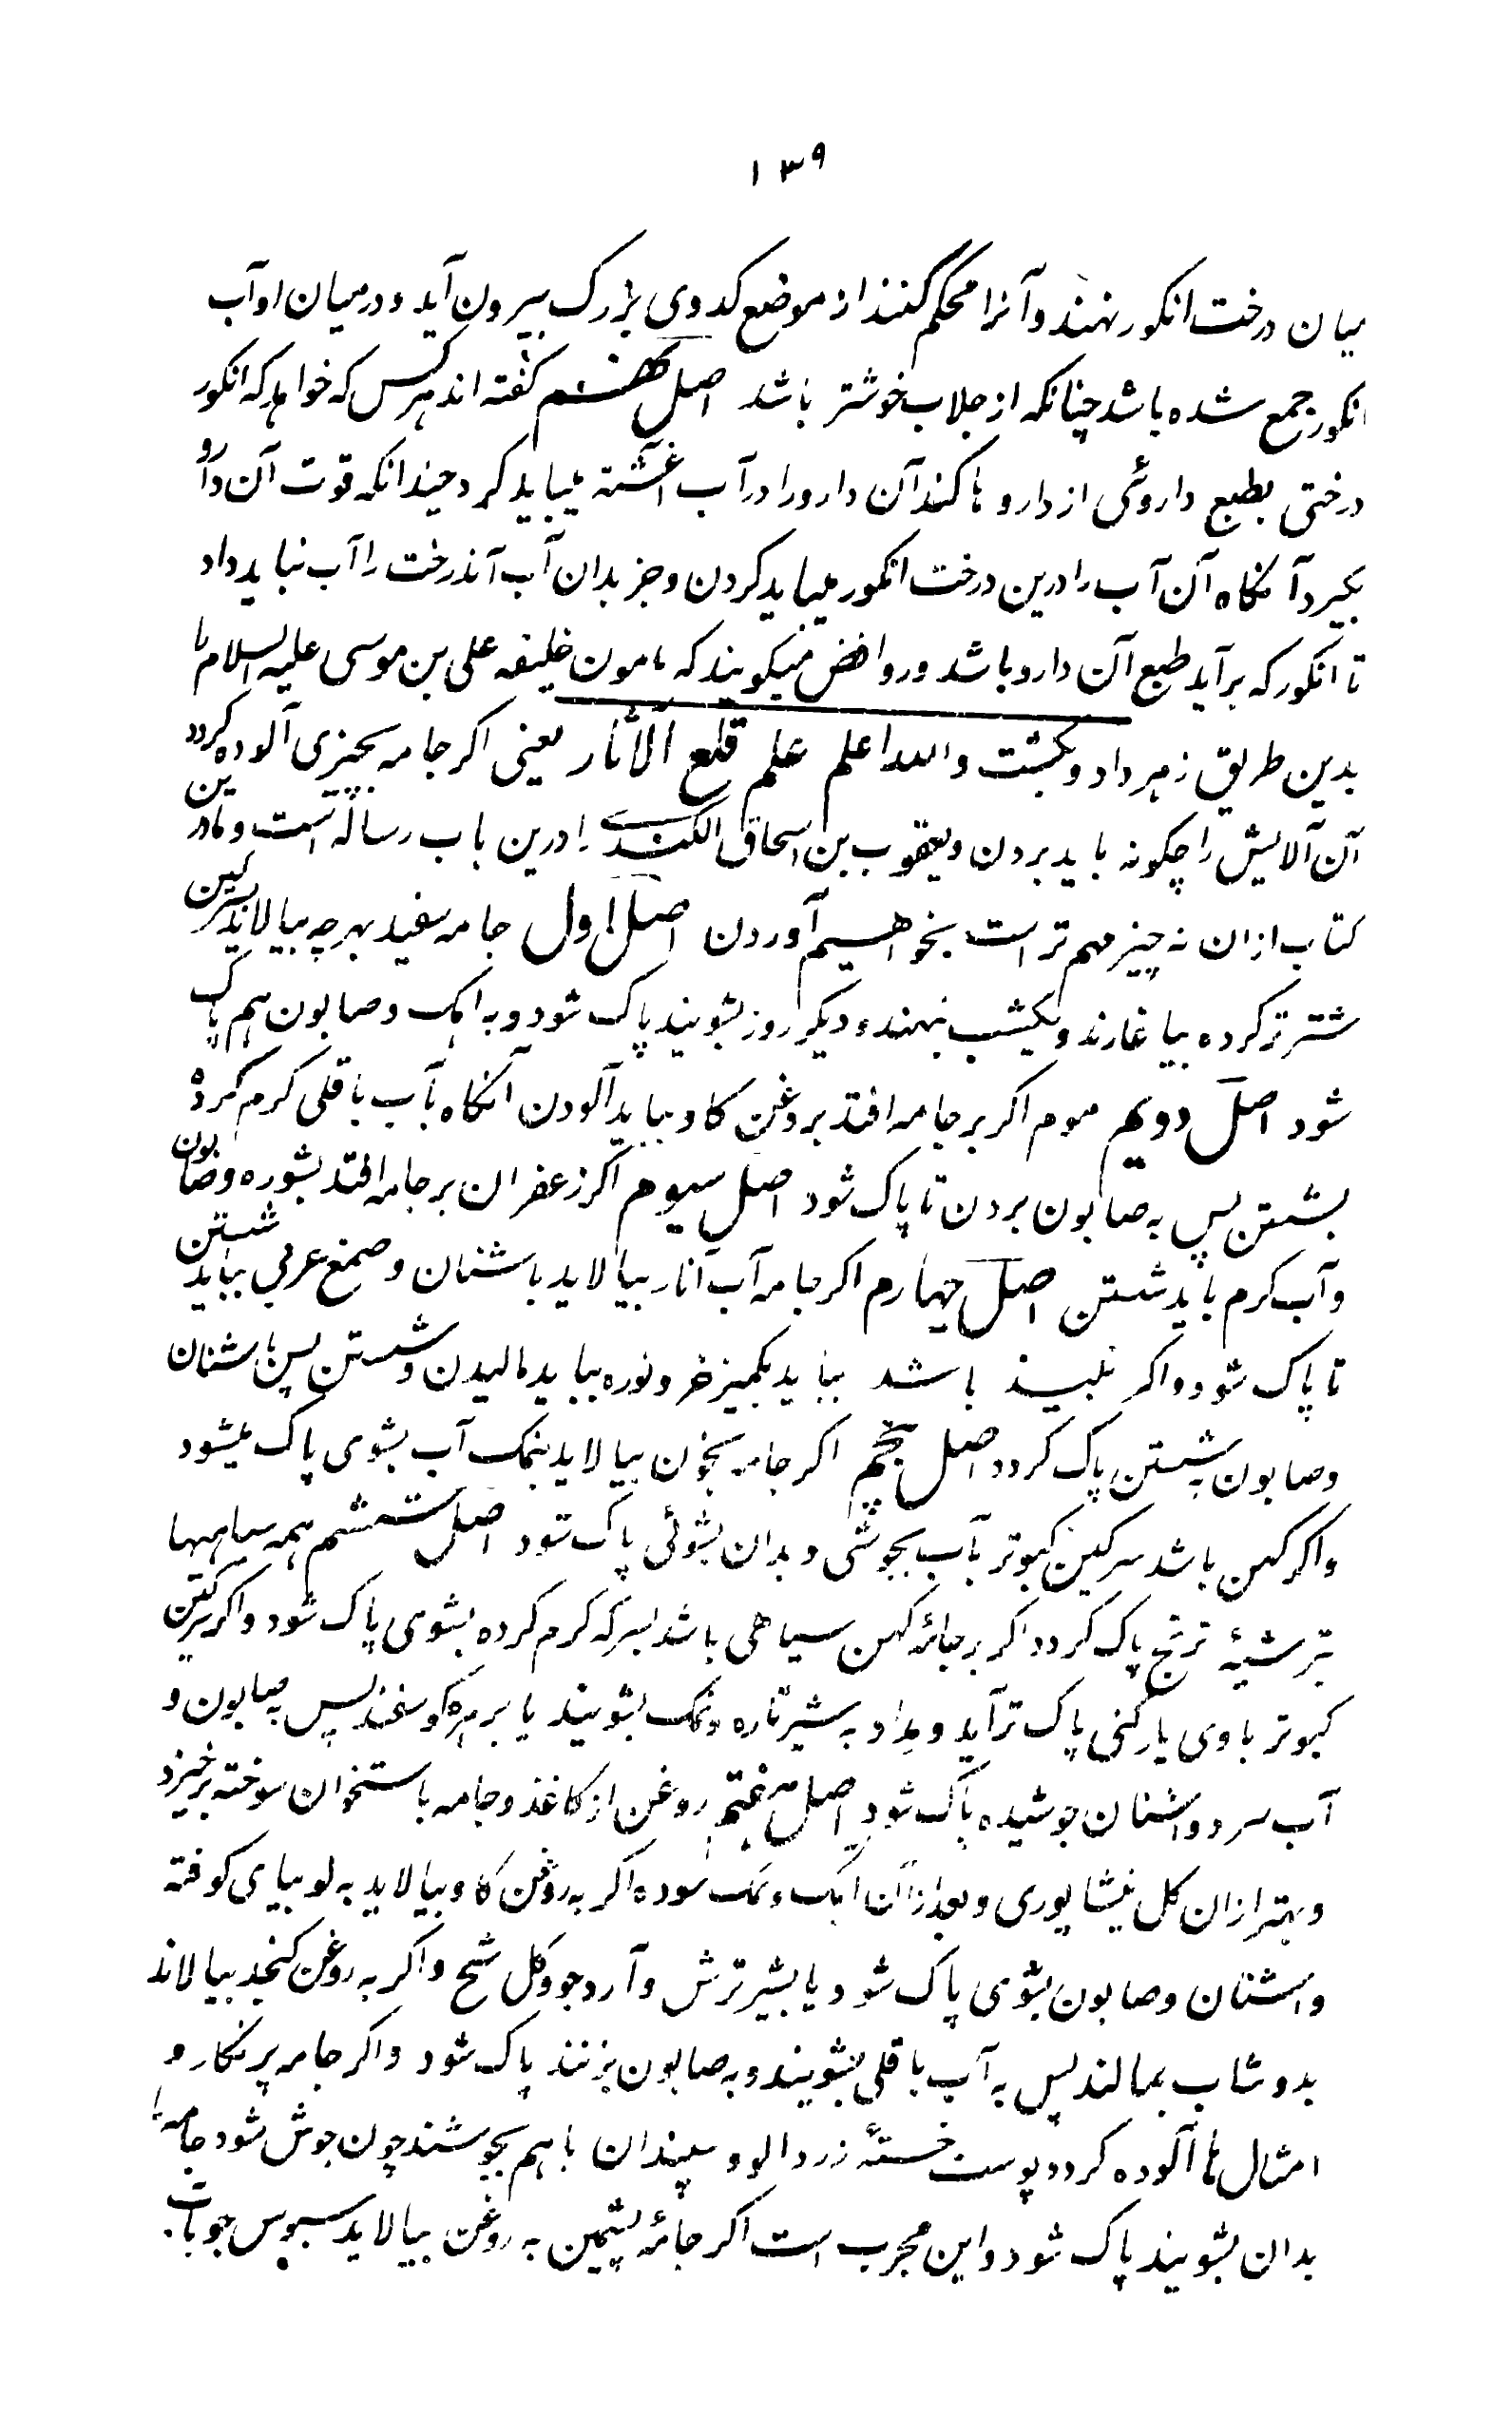 ۱۳۹
میان درخت انکور نهند و آنرا محکم کنند از موضع کدوی بزرک بیرون آید و درمیان او آب
انکور جمع شده باشد چنانکه از جلاب خوشتر باشد اصل نهم کفته اند هر کس که خواهد که انکور
درختی بطبع داروئی از دارو ها کند آن دارو را در آب آغشته میباید کرد چندانکه قوت آن دارو
بکیرد آنکاه آن آب را درین درخت انکور میباید کردن و جز بدان آب آندرخت را آب نباید داد
تا انکور که برآید طبع آن دارو باشد و روافض میکویند که مامون خلیفه علی بن موسی علیه السلام را
بدین طریق زهر داد و بکشت والله اعلم علم قلع الآثار یعنی اکر جامه بچیزی آلوده کردد
آن آلایش را چکونه باید بردن و یعقوب بن اسحاق الکندی را درین باب رساله است و ما درین
کتاب از ان نه چیز مهم تر است بخواهیم آوردن اصل اول جامه سفید بهرچه بیالاید سرکین
شتر تر کرده بیاغارند و یکشب بنهند و دیکر روز بشویند پاک شود و به آهک و صابون هم پاک
شود اصل دویم موم اکر بر جامه افتد بروغن کاو بباید آلودن آنکاه بآب باقلی کرم کرده
بشستن پس به صابون بردن تا پاک شود اصل سیوم اکر زعفران بر جامه افتد بشوره و صابون
و آب کرم باید شستن اصل چهارم اکر جامه آب انار بیالاید باشنان و صمغ عربی بباید شستن
تا پاک شود و اکر نبیذ باشد بباید بکمیز خر و نوره بباید مالیدن و شستن پس باشنان
و صابون بشستن پاک کردد اصل پنجم اکر جامه بخون بیالاید بنمک آب بشوی پاک میشود
و اکر کهن باشد سرکین کبوتر بآب بجوشی و بدان بشوئی پاک شود اصل ششم همه سیاهیها
بترشیٔ ترنج پاک کردد اکر بر جامٔه کهن سیاهی باشد بسرکه کرم کرده بشوی پاک شود و اکر سرکین
کبوتر با وی یار کنی پاک تر آید و مداد به شیر تازه و نمک بشویند یا بر کوسفند پس به صابون و
آب سرد و اشنان جوشیده پاک شود اصل هفتم روغن از کاغذ و جامه باستخوان سوخته برخیزد
و بهتر از ان کل نیشاپوری و بعد از آن آهک و نمک سوده اکر به روغن کاو بیالاید به لوبیای کوفته
و اشنان و صابون بشوی پاک شود یا بشیر ترش و آرد جو و کل شخ و اکر به روغن کنجد بیالاند
بدوشاب بمالند پس به آب باقلی بشویند و به صابون بزنند پاک شود و اکر جامه پر نکار و
امثال ها آلوده کردد پوست خستهٔ زردالو و سپندان باهم بجوشند چون جوش شود جامه را
بدان بشویند پاک شود و این مجرب است اکر جامٔه پشمین به روغن بیالاید سبوس جو بآب